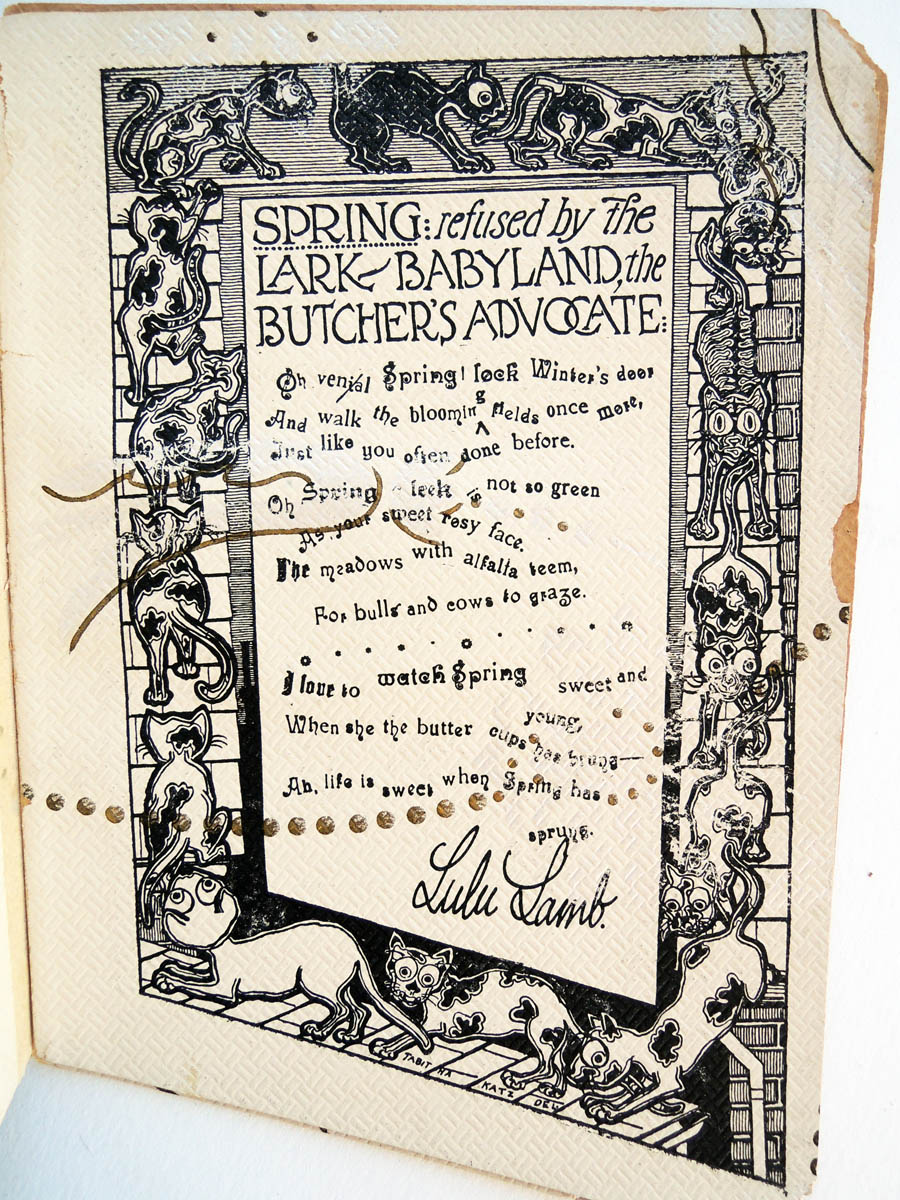 SPRING: refused by the
LARK-BABYLAND, the
BUTCHER'S ADVOCATE:
Oh venial Spring! lock Winter's door
And walk the blooming fields once more,
Just like you often done before.
Oh Spring leek is not so green
As your sweet rosy face.
The meadows with alfalfa teem,
For bulls and cows to graze.
I love to watch Spring sweet and young,
When she the butter cups has brung—
Ah, life is sweet when Spring has sprung.
Lulu Lamb.
TABITHA KATZ DEL